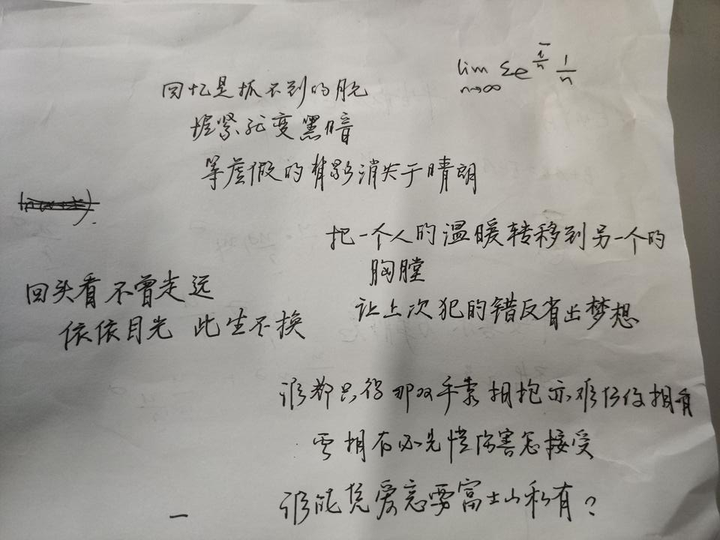 lim Σe^{i/n} 1/n
n→∞
回忆是抓不到的月光
握紧就变黑暗
等虚假的背影消失于晴朗
把一个人的温暖转移到另一个的
胸膛
让上次犯的错反省出梦想
回头看不曾走远
依依目光 此生不换
谁都只得那双手靠拥抱亦难任你拥有
要拥有必先懂伤害怎接受
谁能凭爱意要富士山私有?